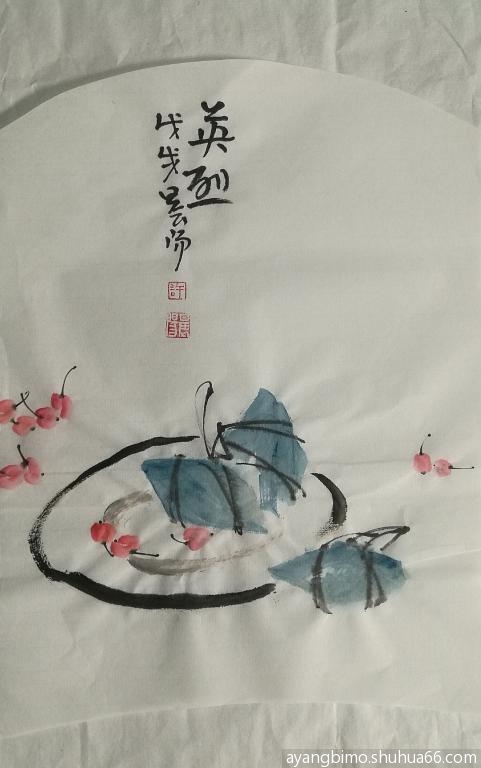 英烈
戊戌昙阳
許
ayangbimo.shuhua66.com